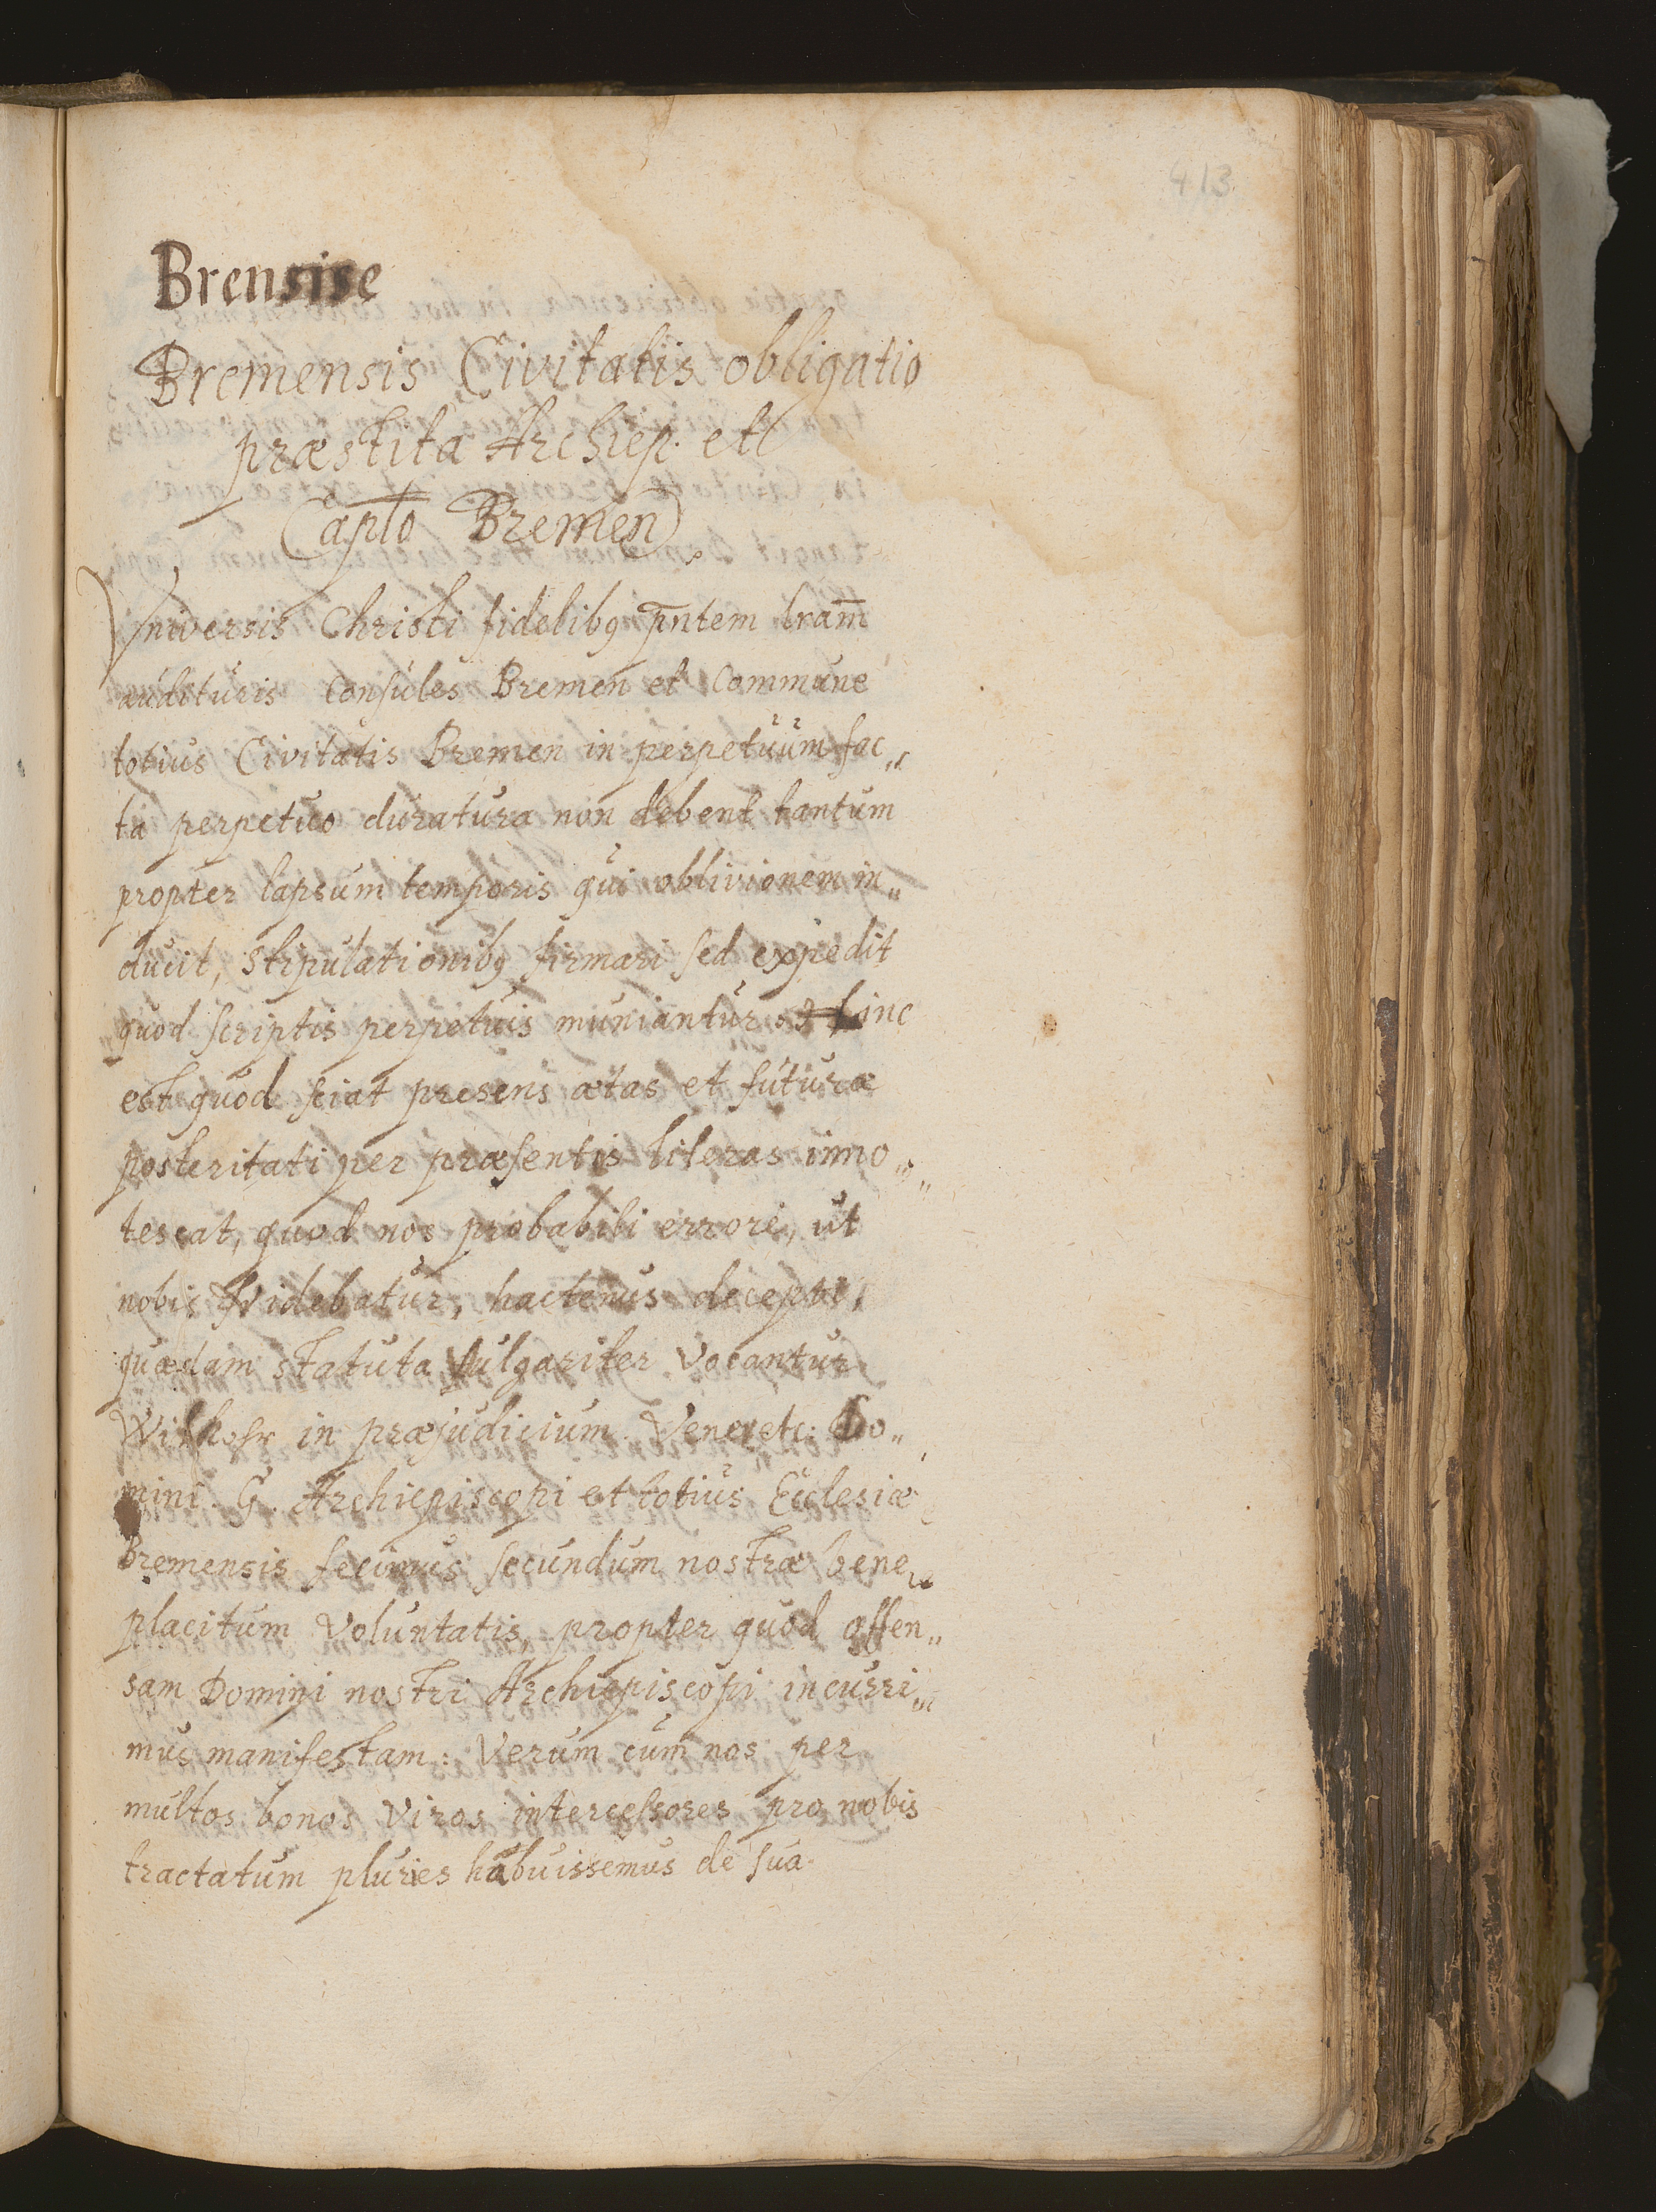 413
Brensise
Bremensis Civitatis obligatio
præstita Archiep. et
Capto Bremen.
Vniversis Christi fidelibq pntem lram
audituris Consules Bremen et Commune
totius Civitatis Bremen in perpetuum fac„
ta perpetuo duratura non debent tantum
propter lapsum temporis qui oblivionem in„
ducit, Stipulationibq firmari sed expedit
quod scriptis perpetuis muniantur hinc
est quod sciat presens ætas et futuræ
posteritati per præsentis literas inno„
tescat, quod nos probabili errore, ut
nobis videbatur, hactenus decepti,
quædam statuta vulgariter vocantur
in præjudicium Vener etc: Do„
mini G. Archiepiscopi et totius Ecclesiæ
Bremensis fecimus secundum nostræ bene„
placitum Voluntatis, propter quod offen„
sam Domini nostri Archiepiscopi incurri„
mus manifestam: Verum cum nos per
multos bonos Viros intercessores pro nobis
tractatum pluries habuissemus de sua